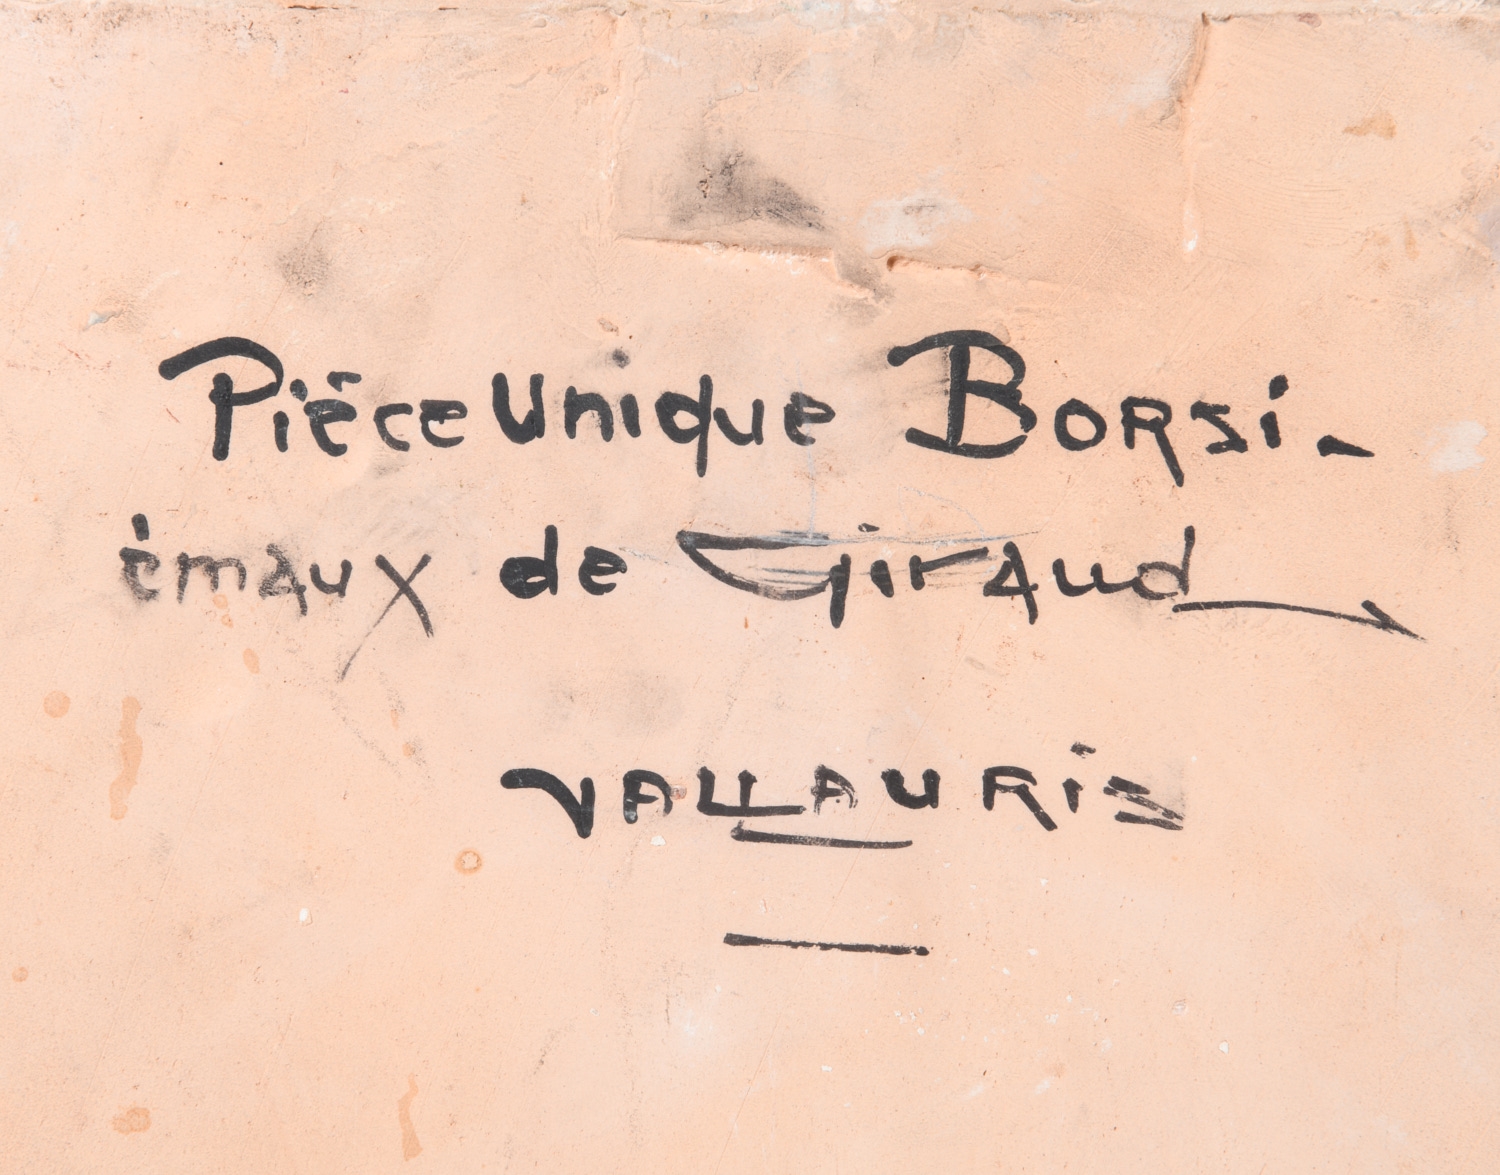 Pièce Unique Borsi -
émaux de Giraud
VALLAURIS